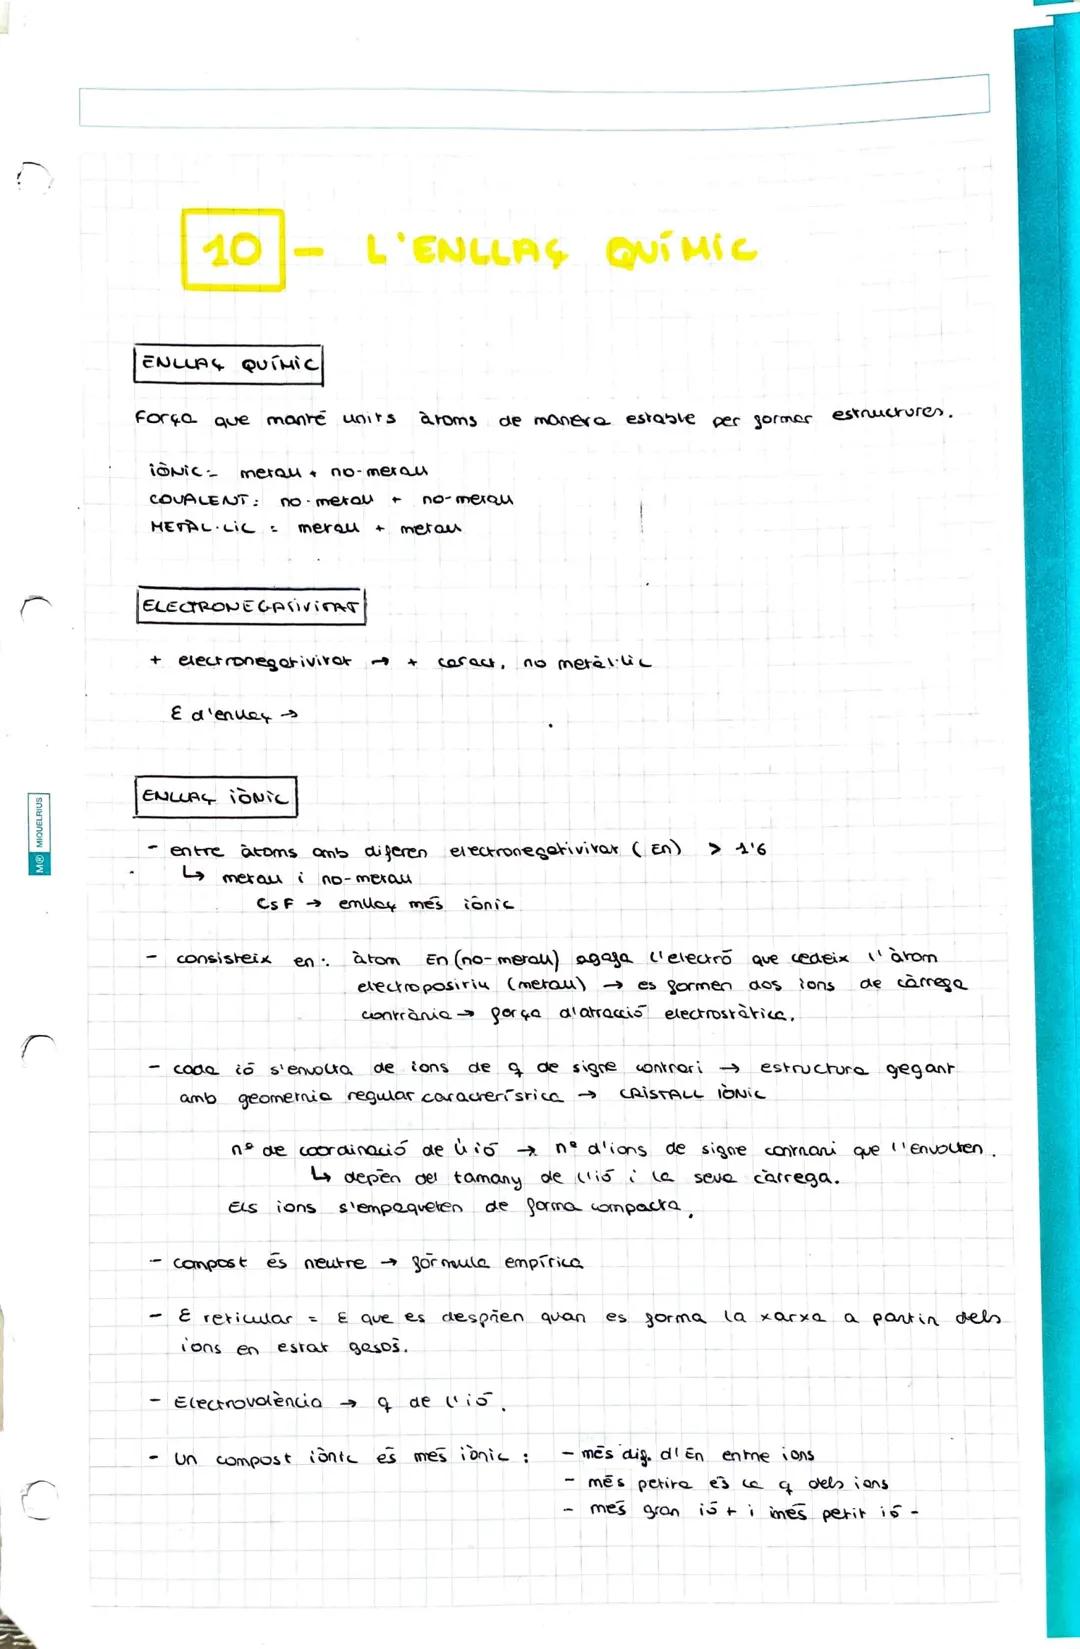 10 - L'ENLLAÇ QUÍMIC
ENLLAÇ QUÍMIC
Força que manté units àtoms de manera estable per formar estructures.
IÒNIC: metall + no-metall
COVALENT: no-metall + no-metall
METÀL·LIC = metall + metall
ELECTRONEGATIVITAT
+ electronegativitat → + caract. no metàl·lic
E d'enllaç →
ENLLAÇ IÒNIC
- entre àtoms amb diferen electronegativitat (En) > 1'6
↳ metall i no-metall
CsF → enllaç més iònic
- consisteix en: àtom En (no-metall) agafa l'electró que cedeix l'àtom
electropositiu (metall) → es formen dos ions de càrrega
contrària → força d'atracció electrostàtica.
- cada ió s'envolta de ions de q de signe contrari → estructura gegant
amb geometria regular característica → CRISTALL IÒNIC
nº de coordinació de ió → nº d'ions de signe contrari que l'envolten.
↳ depèn del tamany de l'ió i la seva càrrega.
Els ions s'empaqueten de forma compacta.
- compost és neutre → fórmula empírica
- E reticular = E que es desprèn quan es forma la xarxa a partir dels
ions en estat gasós.
- Electrovalència → q de l'ió.
- Un compost iònic és més iònic : - més dif. d'En entre ions
- més petita és la q dels ions
- més gran ió + i més petit ió -
M® MIQUELRIUS